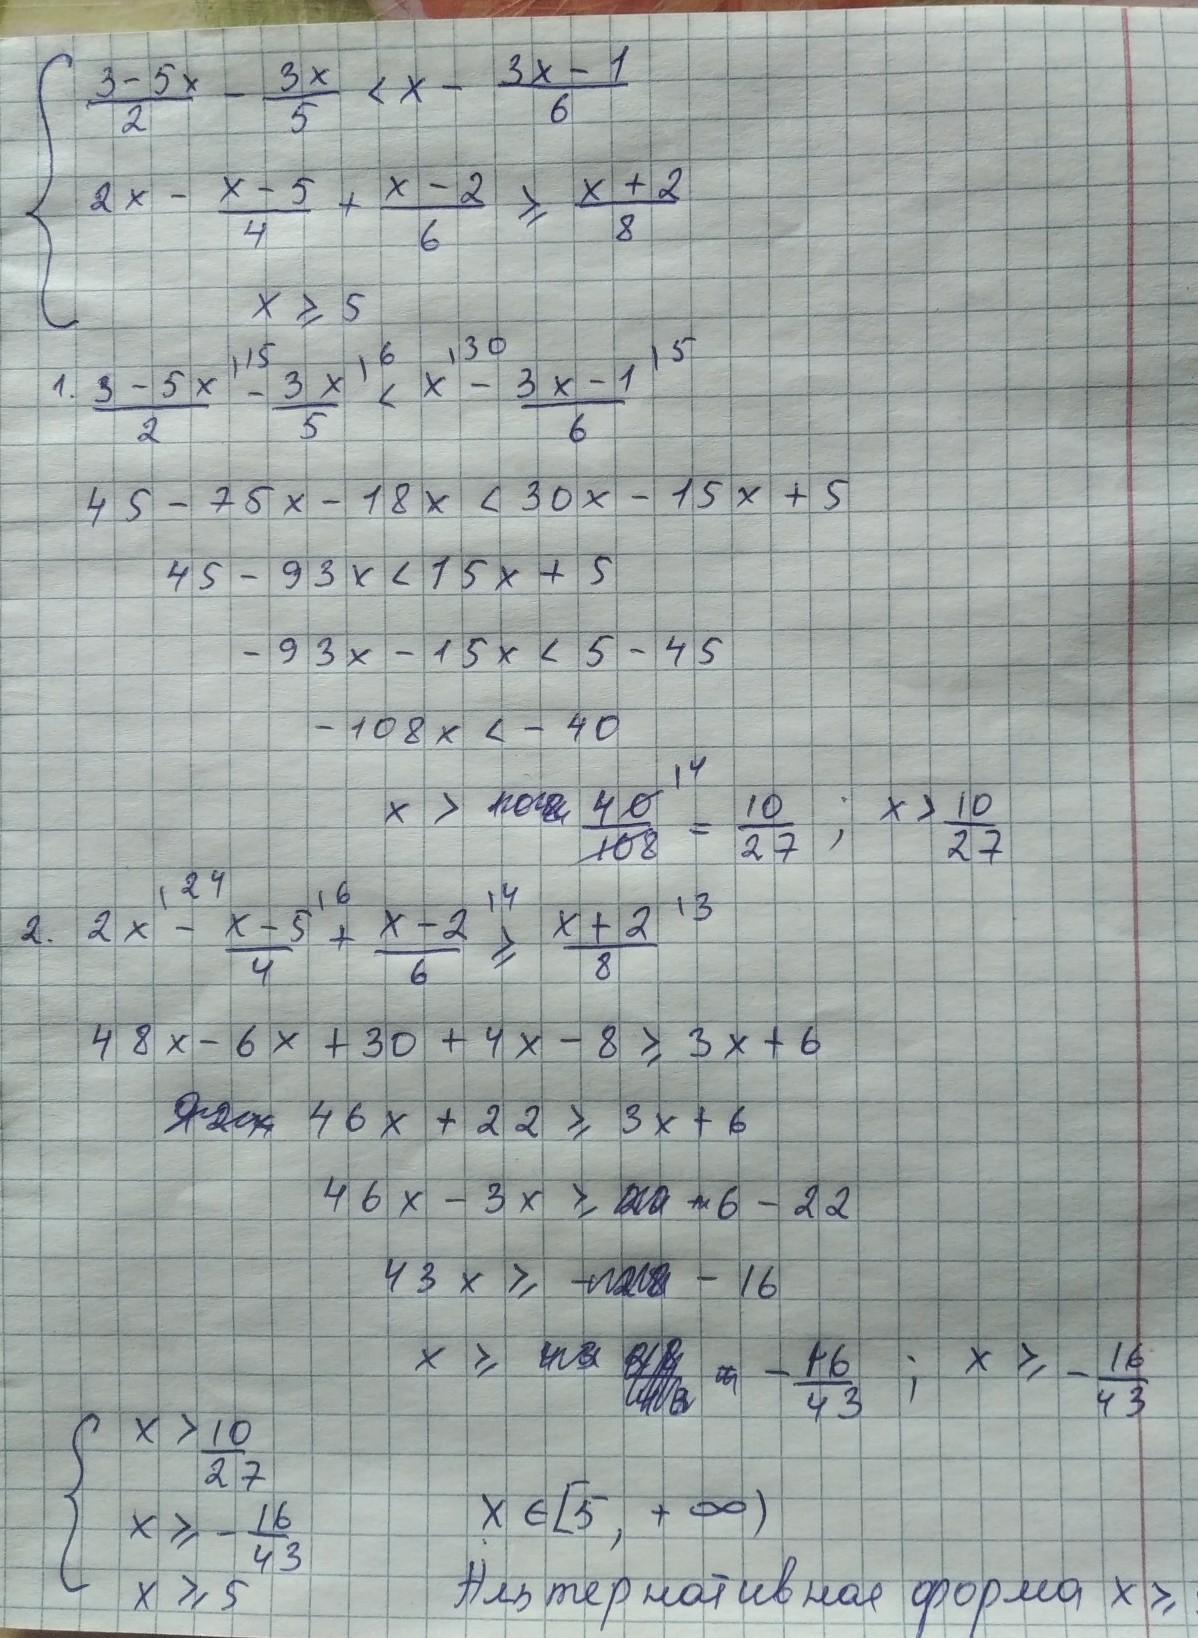 (3-5x)/2 - 3x/5 < x - (3x-1)/6
2x - (x-5)/4 + (x-2)/6 ≥ (x+2)/8
x ≥ 5
1. (3-5x)/2 ,15 - 3x/5 ,6 < x ,30 - (3x-1)/6 ,5
45 - 75x - 18x < 30x - 15x + 5
45 - 93x < 15x + 5
-93x - 15x < 5 - 45
-108x < -40
x > 40/108 ,4 = 10/27 ; x > 10/27
2. 2x ,24 - (x-5)/4 ,6 + (x-2)/6 ,4 ≥ (x+2)/8 ,3
48x - 6x + 30 + 4x - 8 ≥ 3x + 6
46x + 22 ≥ 3x + 6
46x - 3x ≥ 6 - 22
43x ≥ - 16
x ≥ - 16/43 ; x ≥ - 16/43
x > 10/27
x ≥ - 16/43
x ≥ 5
x ∈ [5, + ∞)
Альтернативная форма x ≥